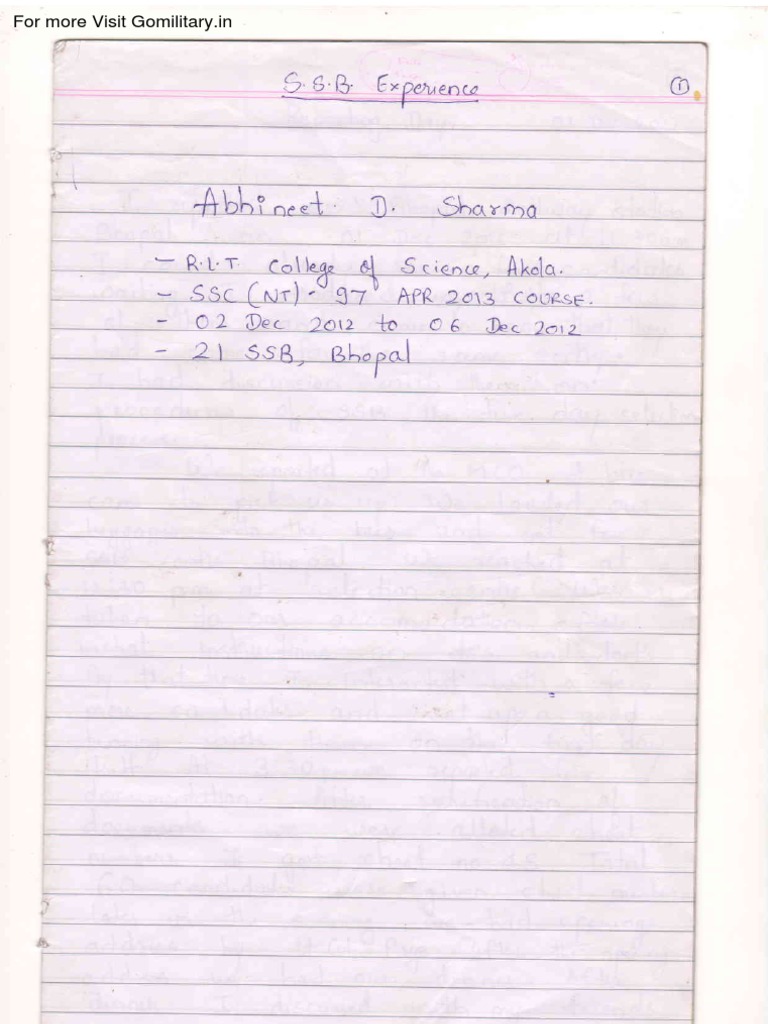 For more Visit Gomilitary.in
S.S.B. Experience
1
Abhineet D. Sharma
- R.L.T. College of Science, Akola.
- SSC (NT) - 97 APR 2013 COURSE.
- 02 Dec 2012 to 06 Dec 2012
- 21 SSB, Bhopal